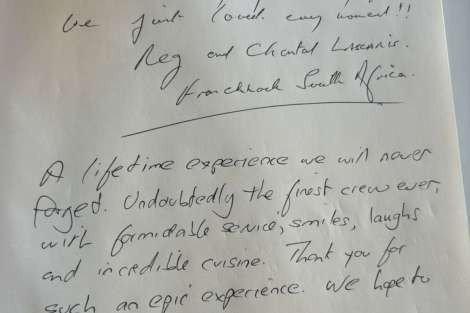 We just loved every moment!!
Reg and Chantal
Franchhoek South Africa.
A lifetime experience we will never
forged. Undoubtedly the finest crew ever,
with formidable service, smiles, laughs
and incredible cuisine. Thank you for
such an epic experience. We hope to